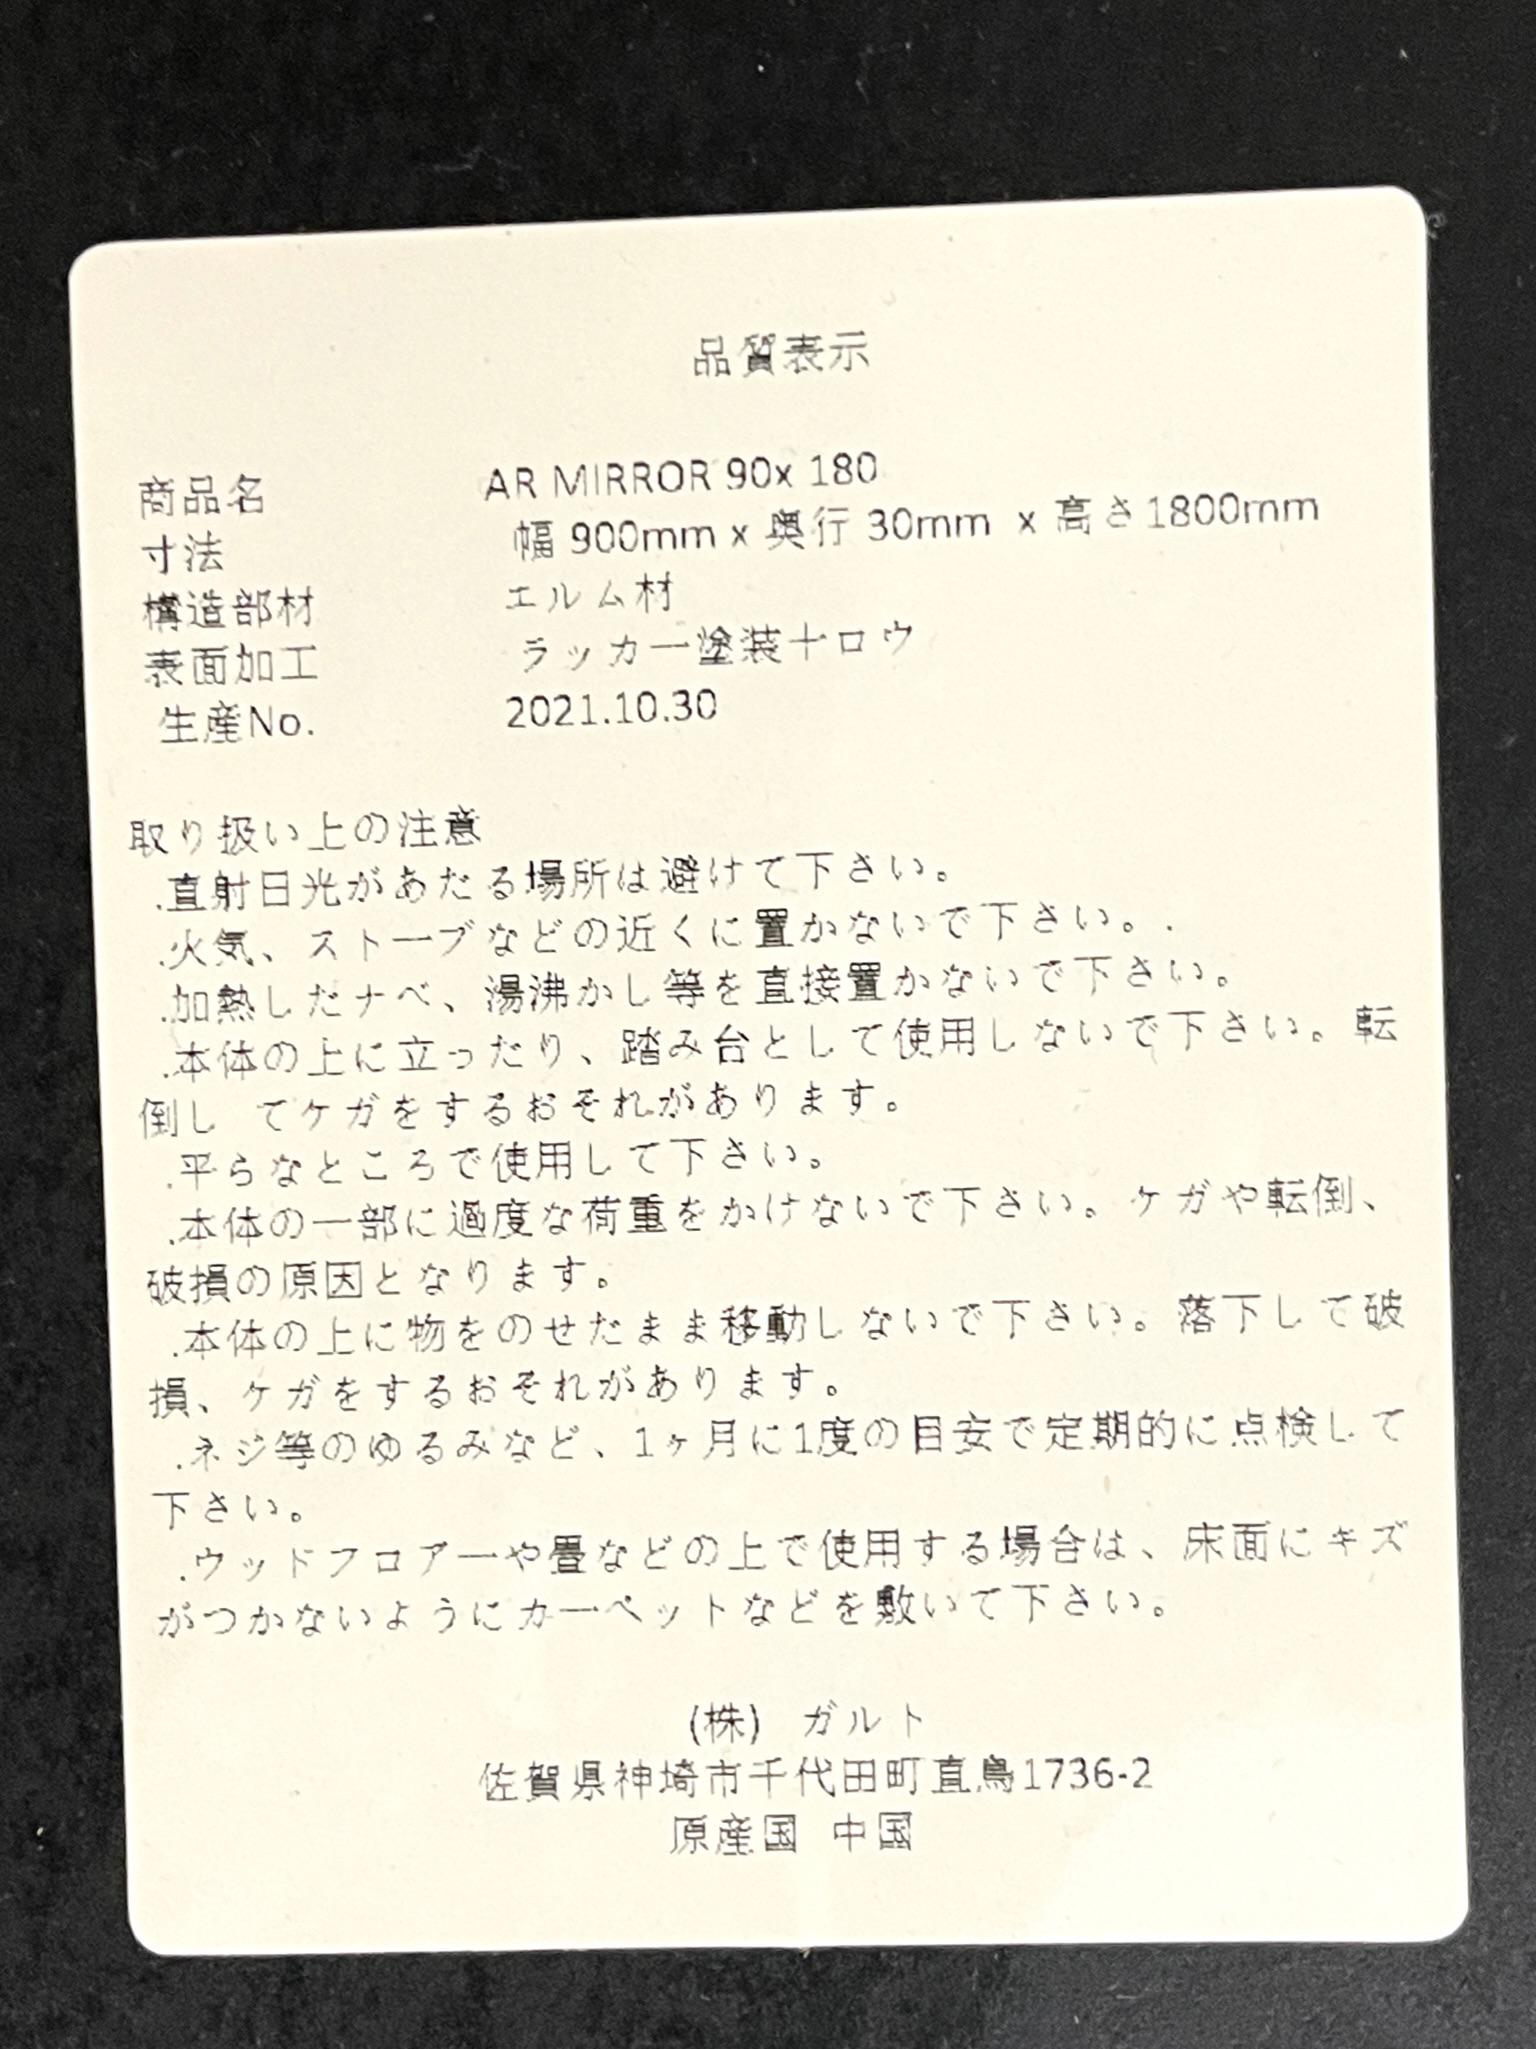 品質表示
商品名 AR MIRROR 90x 180
寸法 幅 900mm x 奥行 30mm x 高さ1800mm
構造部材 エルム材
表面加工 ラッカー塗装+ロウ
生産No. 2021.10.30
取り扱い上の注意
.直射日光があたる場所は避けて下さい。
.火気、ストーブなどの近くに置かないで下さい。.
.加熱しだナベ、湯沸かし等を直接置かないで下さい。
.本体の上に立ったり、踏み台として使用しないで下さい。転
倒し てケガをするおそれがあります。
.平らなところで使用して下さい。
.本体の一部に過度な荷重をかけないで下さい。ケガや転倒、
破損の原因となります。
.本体の上に物をのせだまま移動しないで下さい。落下して破
損、ケガをするおそれがあります。
.ネジ等のゆるみなど、1ヶ月に1度の目安で定期的に点検して
下さい。
.ウッドフロアーや畳などの上で使用する場合は、床面にキズ
がつかないようにカーペットなどを敷いて下さい。
(株) ガルト
佐賀県神埼市千代田町直鳥1736-2
原産国 中国